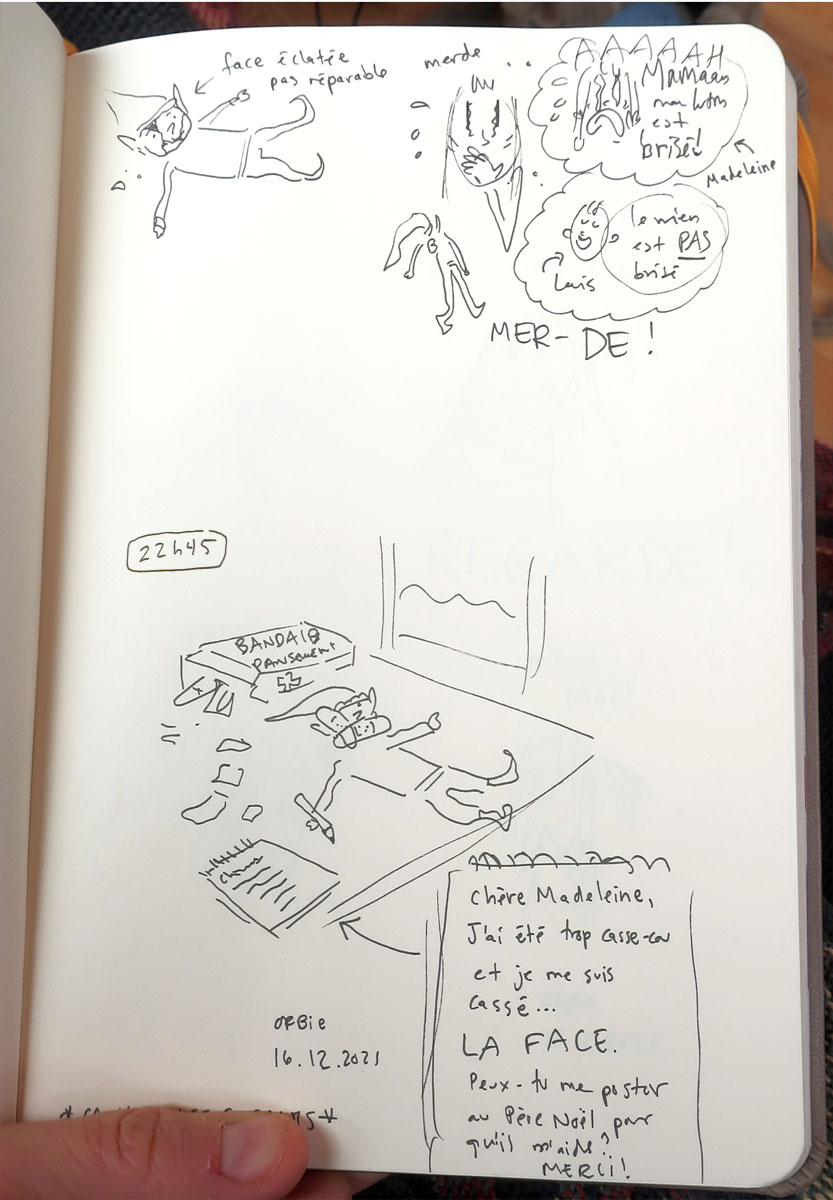 face éclatée
pas réparable
merde ..
AAAAAH
Mamaan
mon lutin
est
brisé!
Madeleine
le mien
est PAS
brisé
Louis
MER-DE !
22h45
BANDAID
PANSEMENT
53
Chère
Chère Madeleine,
J'ai été trop casse-cou
et je me suis
cassé...
LA FACE.
Peux-tu me poster
au Père Noël pour
qu'il m'aide?
MERCI!
ORBie
16.12.2021